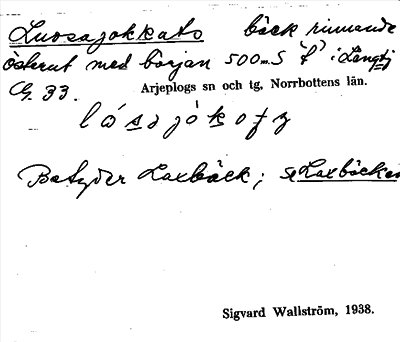 Luosajokkats bäck rinnande
österut med början 500m S "f" i Långtj
G. 33. Arjeplogs sn och tg, Norrbottens län.
Betyder Laxbäck; se Laxbäcken
Sigvard Wallström, 1938.